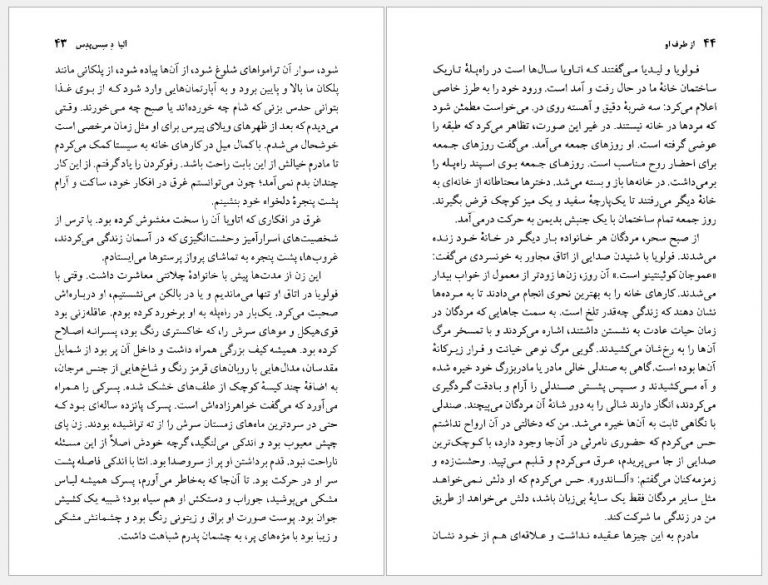 آلبا د سس‌پدس ۴۳
شود، سوار آن ترامواهای شلوغ شود، از آن‌ها پیاده شود، از پلکانی مانند
پلکان ما بالا و پایین برود و به آپارتمان‌هایی وارد شود که از بوی غذا
بتوانی حدس بزنی که شام چه خورده‌اند یا صبح چه می‌خورند. وقتی
می‌دیدم که بعد از ظهرهای ویلای پیرس برای او مثل زمان مرخصی است
خوشحال می‌شدم. با کمال میل در کارهای خانه به سیستا کمک می‌کردم
تا مادرم خیالش از این بابت راحت باشد. رفوکردن را یاد گرفتم. از این کار
چندان بدم نمی‌آمد؛ چون می‌توانستم غرق در افکار خود، ساکت و آرام
پشت پنجرهٔ دلخواه خود بنشینم.
غرق در افکاری که اتاویا آن را سخت مغشوش کرده بود. با ترس از
شخصیت‌های اسرارآمیز وحشت‌انگیزی که در آسمان زندگی می‌کردند،
غروب‌ها، پشت پنجره به تماشای پرواز پرستوها می‌ایستادم.
این زن از مدت‌ها پیش با خانوادهٔ چلانتی معاشرت داشت. وقتی با
فولویا در اتاق او تنها می‌ماندیم و یا در بالکن می‌نشستیم، او درباره‌اش
صحبت می‌کرد. یک‌بار در راه‌پله به او برخورده کرده بودم. عاقله‌زنی بود
قوی‌هیکل و موهای سرش را، که خاکستری رنگ بود، پسرانه اصلاح
کرده بود. همیشه کیف بزرگی همراه داشت و داخل آن پر بود از شمایل
مقدسان، مدال‌هایی با روبان‌های قرمز رنگ و شاخ‌هایی از جنس مرجان،
به اضافهٔ چند کیسهٔ کوچک از علف‌های خشک شده. پسرکی را همراه
می‌آورد که می‌گفت خواهرزاده‌اش است. پسرک پانزده ساله‌ای بود که
حتی در سردترین ماه‌های زمستان سرش را از ته تراشیده بودند. زن پای
چپش معیوب بود و اندکی می‌لنگید، گرچه خودش اصلاً از این مسئله
ناراحت نبود. قدم برداشتن او پر از سروصدا بود. انثا با اندکی فاصله پشت
سر او در حرکت بود. تا آن‌جا که به‌خاطر می‌آورم، پسرک همیشه لباس
مشکی می‌پوشید، جوراب و دستکش او هم سیاه بود؛ شبیه یک کشیش
جوان بود. پوست صورت او براق و زیتونی رنگ بود و چشمانش مشکی
و زیبا بود با مژه‌های پر، به چشمان پدرم شباهت داشت.
۴۴ از طرف او
فولویا و لیدیا می‌گفتند که اتاویا سال‌ها است در راه‌پلهٔ تاریک
ساختمان خانهٔ ما در حال رفت و آمد است. ورود خود را به طرز خاصی
اعلام می‌کرد: سه ضربهٔ دقیق و آهسته روی در. می‌خواست مطمئن شود
که مردها در خانه نیستند. در غیر این صورت، تظاهر می‌کرد که طبقه را
عوضی گرفته است. او روزهای جمعه می‌آمد. می‌گفت روزهای جمعه
برای احضار روح مناسب است. روزهای جمعه بوی اسپند راه‌پله را
برمی‌داشت. در خانه‌ها باز و بسته می‌شد. دخترها محتاطانه از خانه‌ای به
خانهٔ دیگر می‌رفتند تا یک‌پارچهٔ سفید و یک میز کوچک قرض بگیرند.
روز جمعه تمام ساختمان با یک جنبش بدیمن به حرکت درمی‌آمد.
از صبح سحر، مردگان هر خانواده بار دیگر در خانهٔ خود زنده
می‌شدند. فولویا با شنیدن صدایی از اتاق مجاور به خونسردی می‌گفت:
«عموجان کوئینتینو است.» آن روز، زن‌ها زودتر از معمول از خواب بیدار
می‌شدند. کارهای خانه را به بهترین نحوی انجام می‌دادند تا به مرده‌ها
نشان دهند که زندگی چه‌قدر تلخ است. به سمت جاهایی که مردگان در
زمان حیات عادت به نشستن داشتند، اشاره می‌کردند و با تمسخر مرگ
آن‌ها را به رخ‌شان می‌کشیدند. گویی مرگ نوعی خیانت و فرار زیرکانهٔ
آن‌ها بوده است. گاهی به صندلی خالی مادر یا مادربزرگ خود خیره شده
و آه می‌کشیدند و سپس پشتی صندلی را آرام و بادقت گردگیری
می‌کردند، انگار دارند شالی را به دور شانهٔ آن مردگان می‌پیچند. صندلی
با نگاهی ثابت به آن‌ها خیره می‌شد. من که دخالتی در آن ارواح نداشتم
حس می‌کردم که حضوری نامرئی در آن‌جا وجود دارد، با کوچک‌ترین
صدایی از جا می‌پریدم، عرق می‌کردم و قلبم می‌تپید. وحشت‌زده و
زمزمه‌کنان می‌گفتم: «آلساندرو». حس می‌کردم که او دلش نمی‌خواهد
مثل سایر مردگان فقط یک سایهٔ بی‌زبان باشد، دلش می‌خواهد از طریق
من در زندگی ما شرکت کند.
مادرم به این چیزها عقیده نداشت و علاقه‌ای هم از خود نشان